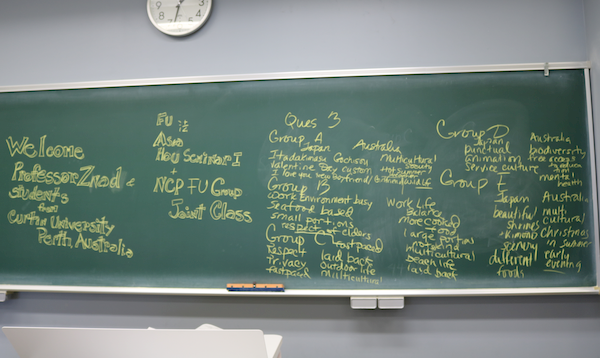 Welcome
Professor Znad &
students
from
Curtin University
Perth, Australia
FU
Aso
Hou Seminar I
+
NCP FU Group
Joint Class
Ques 3
Group A
Japan Australia
Itadakimasu Multicultural
Valentine Day custom
I love you
Group B
Work Environment busy
Seafood based
small portions
respect elders
Work Life
Balance
more cooked
food
large portion
multicultural
beach life
laid back
Group C
respect laid back
Privacy outdoor life
fastpaced multicultural
Group D
Japan Australia
punctual biodiversity
animation free access
service culture
and
health
Group E
Japan Australia
beautiful multi
shrines cultural
kimono Christmas
in summer
different early
foods evening